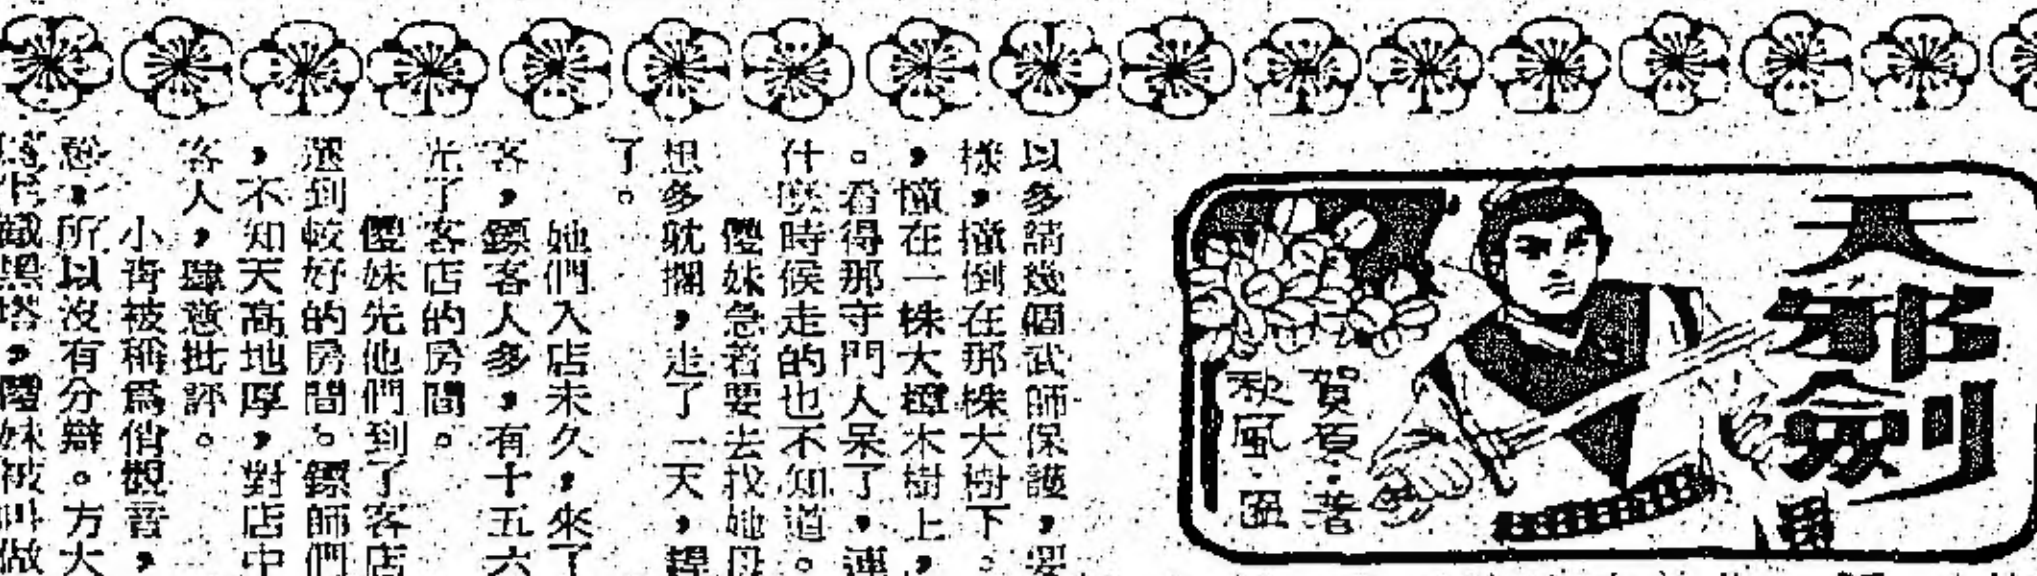 天邪劍
賀原·著
秋風·圖
以多請幾個武師保護，要
樣，撞倒在那株大樹下。
，撞在一株大樟木樹上，
。看得那守門人呆了，連
什麼時候走的也不知道。
儍妹急着要去找她母
想多躭擱，走了一天，
了。
她們入店未久，來了
客，鏢客人多，有十五六
光了客店的房間。
儍妹先他們到了客店
選到較好的房間。鏢師們
，不知天高地厚，對店中
客人，肆意批評。
小靑被稱爲俏觀音，
怒，所以沒有分辯。方大
黑塔，儍妹被叫做